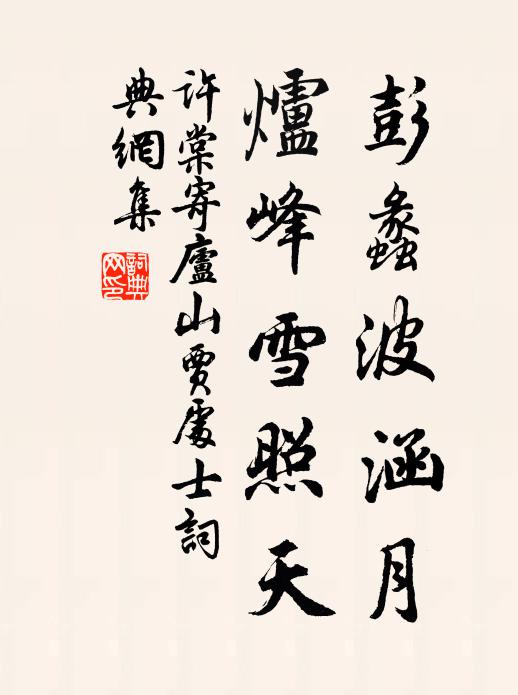 彭蠡波涵月
爐峰雪照天
許棠寄廬山賈處士詞
典網集
詞典
网印